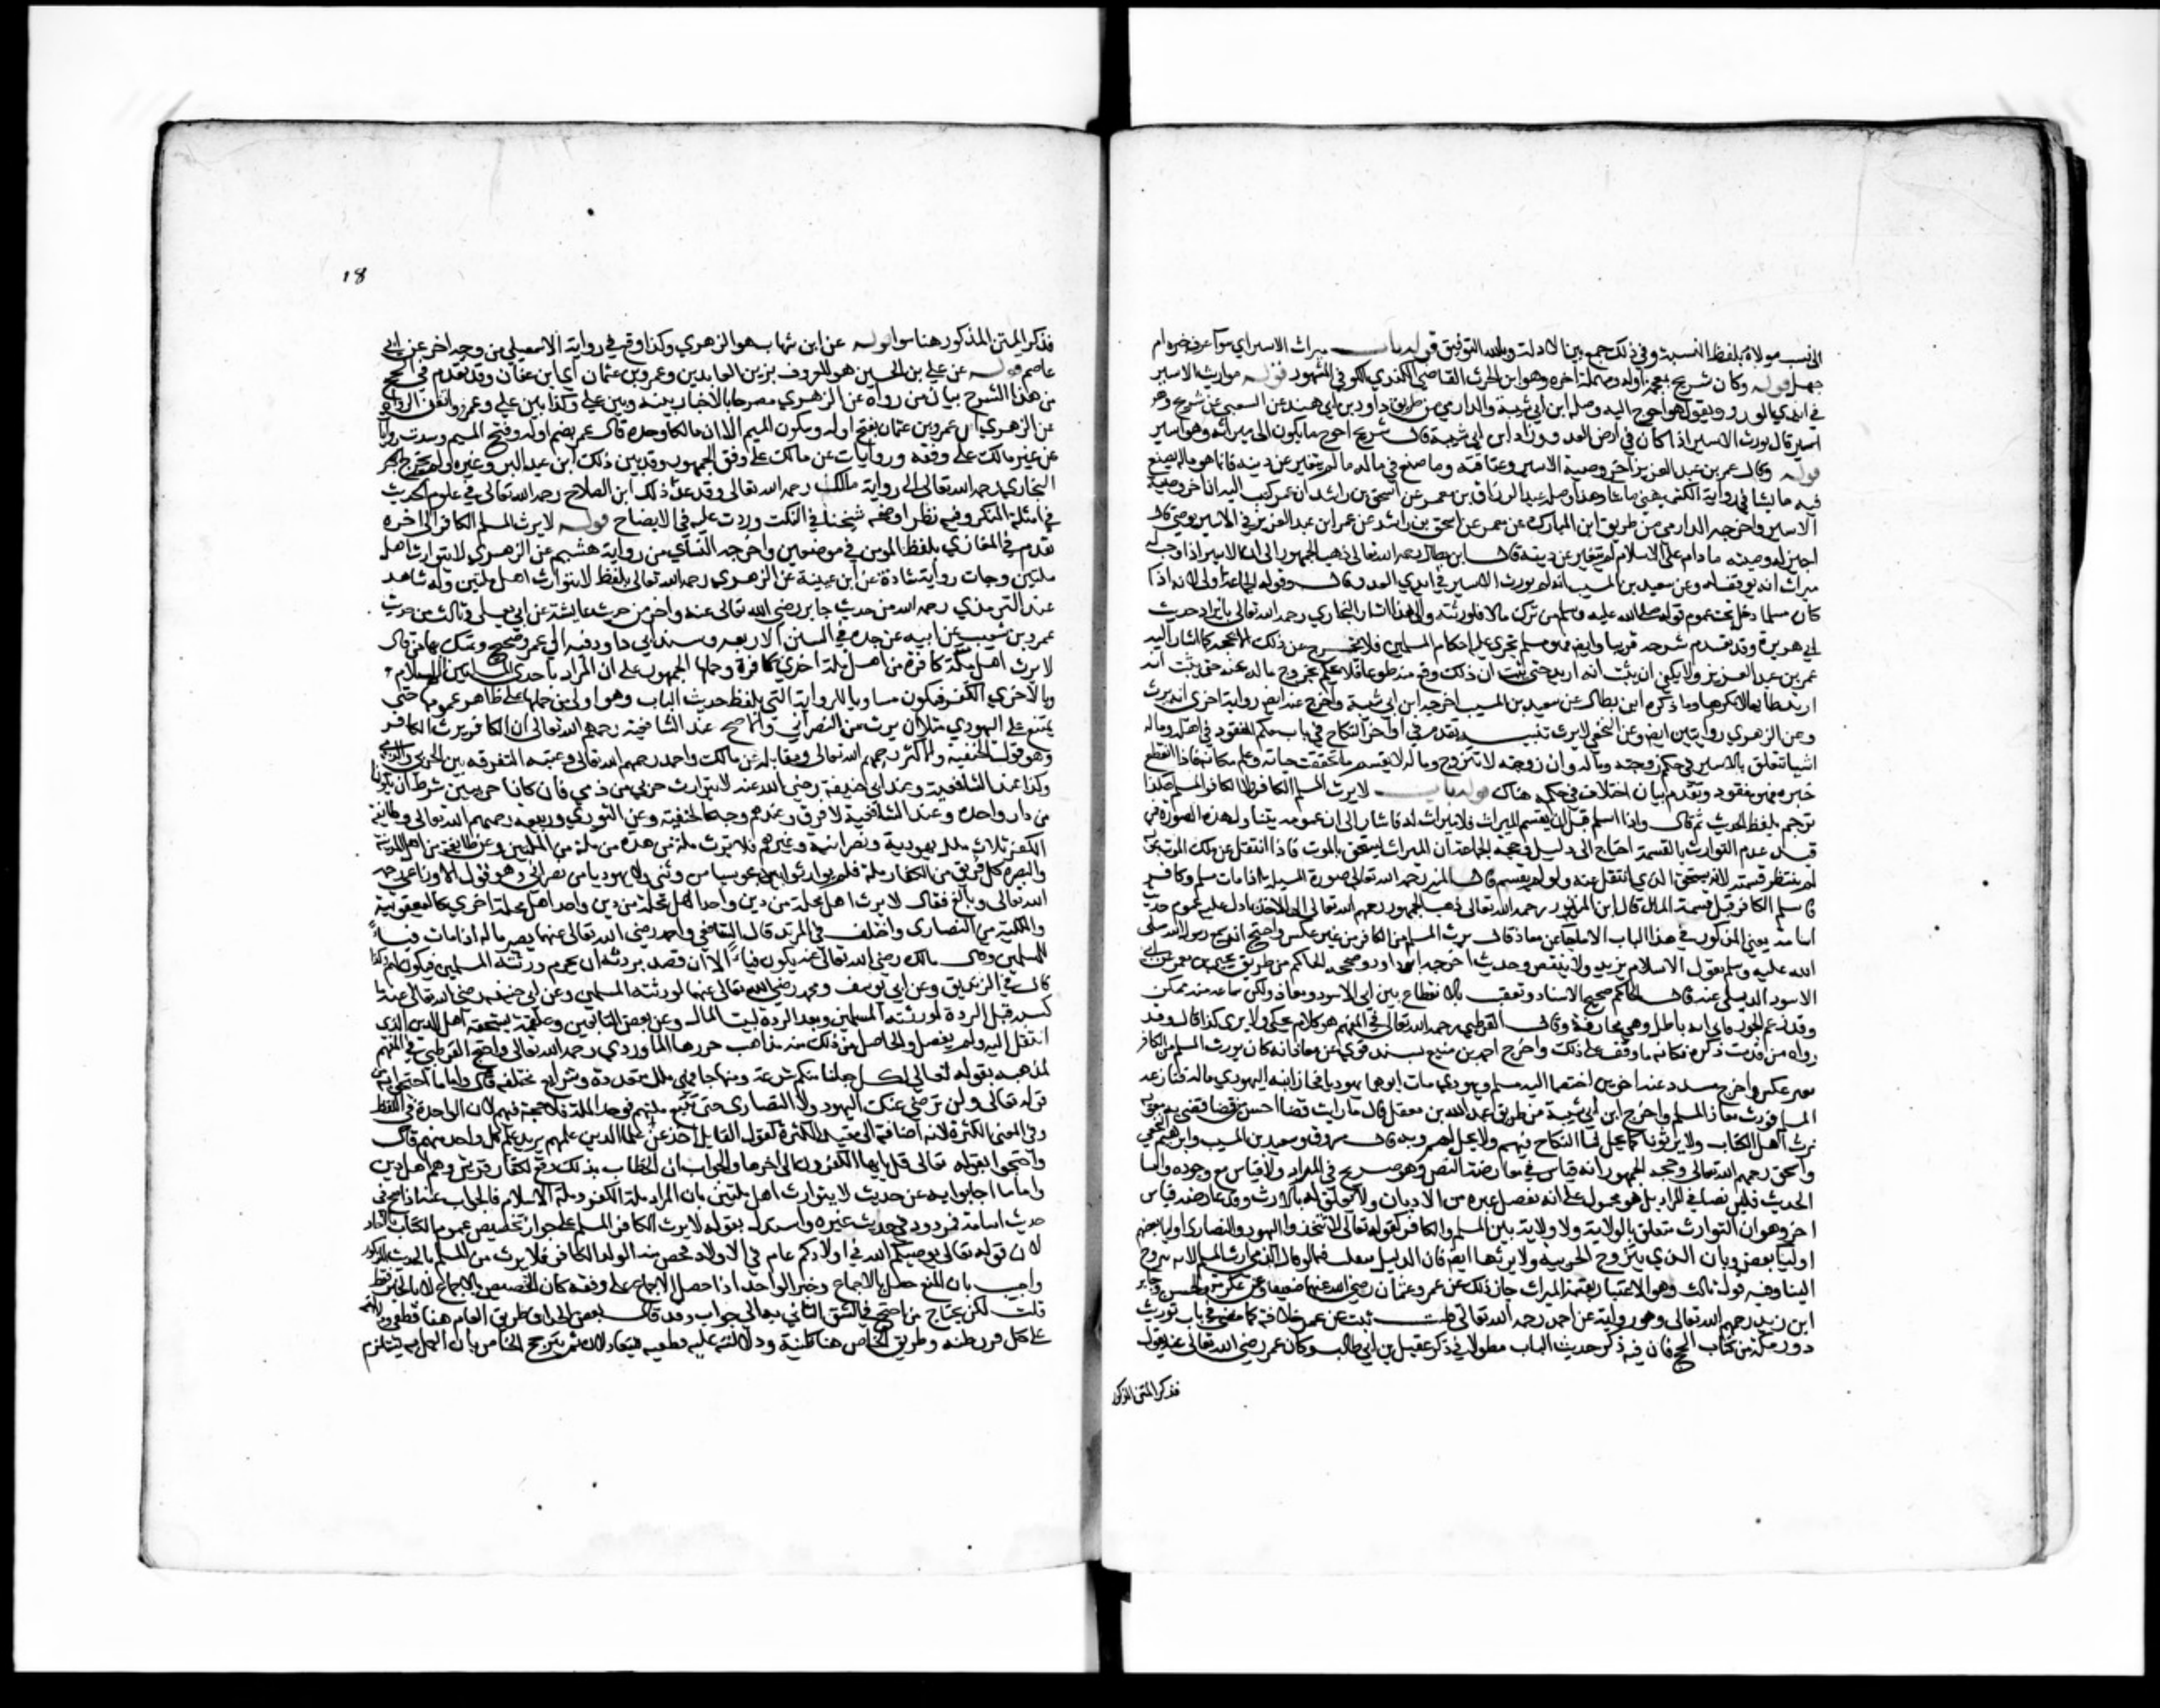 الى نسب مولاه بلفظ النسبة وفي ذلك جمع بين الادلة وبالله التوفيق قوله باب ميراث الاسير اي سواء عرف خبره ام
جهل قوله وكان شريح بمعجمة اوله ومهملة اخره وهو ابن الحرث القاضي الكندي الكوفي المشهور قوله يورث الاسير
في ايدي العدو ويقول هو احوج اليه وصله ابن ابي شيبة والدارمي من طريق داود بن ابي هند عن الشعبي عن شريح
اسير قال يورث الاسير اذا كان في ارض العدو وزاد ابن ابي شيبة قال شريح احوج ما يكون الى ميراثه وهو اسير
قوله وقال عمر بن عبد العزيز اجز وصية الاسير وعتاقته وما صنع في ماله ما لم يتغير عن دينه فانما هو ماله يصنع
فيه ما يشا في رواية الكشميهني ما شا وهذا وصله عبد الرزاق عن معمر عن اسحق بن راشد ان عمر كتب اليه ان اجز وصية
الاسير واخرجه الدارمي من طريق ابن المبارك عن معمر عن اسحق بن راشد عن عمر ابن عبد العزيز في الاسير يوصي قال
اجيز له وصيته ما دام على الاسلام لم يتغير عن دينه قال ابن بطال رحمه الله تعالى ذهب الجمهور الى ان الاسير اذا وجب له
ميراث انه يوقف له وعن سعيد بن المسيب انه لم يورث الاسير في ايدي العدو قال وقول الجماعة اولى لانه اذا
كان مسلما دخل تحت عموم قوله صلى الله عليه وسلم من ترك مالا فلورثته والى هذا اشار البخاري رحمه الله تعالى بايراد حديث
ابي هريرة وقد تقدم شرحه قريبا وايضا فهو مسلم تجري عليه احكام المسلمين فلا يخرج عن ذلك الا بحجة كما اشار اليه
عمر بن عبد العزيز ولا يكفي ان يثبت انه ارتد حتى يثبت ان ذلك وقع منه طوعا فلا يحكم بخروج ماله عنه حتى يثبت انه
ارتد طائعا لا مكرها وما ذكره ابن بطال عن سعيد بن المسيب اخرجه ابن ابي شيبة واخرج عنه ايضا رواية اخرى انه يرث
وعن الزهري روايتين ايضا وعن النخعي لا يرث تنبيه تقدم في اواخر النكاح في باب حكم المفقود في اهله وماله
اشيا تتعلق بالاسير في حكم زوجته وماله وان زوجته لا تتزوج وماله لا يقسم ما تحققت حياته وعلم مكانه فاذا انقطع
خبره فهو مفقود وتقدم بيان اختلاف في حكمه هناك قوله باب لا يرث المسلم الكافر ولا الكافر المسلم هكذا
ترجم بلفظ الحديث ثم قال واذا اسلم قبل ان يقسم الميراث فلا ميراث له فاشار الى ان عمومه يتناول هذه الصورة فمن
قيد عدم التوارث بالقسمة احتاج الى دليل وحجة الجماعة ان الميراث يستحق بالموت فاذا انتقل عن ملك الميت بموته
لم ينتظر قسمته لانه استحق الذي انتقل عنه ولو لم يقسم قال ابن المنير رحمه الله تعالى صورة المسيلة اذا مات مسلم وكافر
فاسلم الكافر قبل قسمة المال قال ابن المنذر رحمه الله تعالى ذهب الجمهور رحمهم الله تعالى الى الاخذ بما دل عليه عموم حديث
اسامة يعني المذكور في هذا الباب الا ما جا عن معاذ قال يرث المسلم من الكافر من غير عكس واحتج انه سمع رسول الله صلى
الله عليه وسلم يقول الاسلام يزيد ولا ينقص وحديث اخرجه ابو داود وصححه الحاكم من طريق يحيى بن يعمر عن ابي
الاسود الديلي عنه قال الحاكم صحيح الاسناد وتعقب بالانقطاع بين ابي الاسود ومعاذ ولكن سماعه منه ممكن
وقد زعم الجوزقاني انه باطل وهي مجازفة وقال القرطبي رحمه الله تعالى في المفهم هو كلام يحكى ولا يروى كذا قال وقد
رواه من قدمت ذكره فكانه ما وقف على ذلك واخرج احمد بن منيع بسند قوي عن معاذ انه كان يورث المسلم من الكافر
بغير عكس واخرج مسدد عنه ان اخوين اختصما اليه مسلم ويهودي مات ابوهما يهوديا فحاز ابنه اليهودي ماله فنازعه
المسلم فورث معاذ المسلم واخرج ابن ابي شيبة من طريق عبد الله بن معقل قال ما رايت قضا احسن من قضا قضى به معوية
نرث اهل الكتاب ولا يرثونا كما يحل لنا النكاح فيهم ولا يحل لهم وبه قال مسروق وسعيد بن المسيب وابراهيم النخعي
واسحق رحمهم الله تعالى وحجة الجمهور انه قياس في معارضة النص وهو صريح في المراد ولا قياس مع وجوده واما
الحديث فليس نصا في المراد بل هو محمول على انه يفضل غيره من الاديان ولا تعلق له بالارث وقد عارضه قياس
اخر وهو ان التوارث متعلق بالولاية ولا ولاية بين المسلم والكافر لقوله تعالى لا تتخذوا اليهود والنصارى اوليا بعضهم
اوليا بعض وبان الذمي يتزوج الحربية ولا يرثها ايضا فان الدليل ينقلب فيما لو قال الذمي ارث المسلم لانه يتزوج
الينا وفيه قول ثالث وهو الاعتبار بقسمة الميراث جا ذلك عن عمر وعثمان رضي الله عنهما وعن عكرمة والحسن وجابر
ابن زيد رحمهم الله تعالى وهو رواية عن احمد رحمه الله تعالى قلت ثبت عن عمر خلافه كما مضى في باب توريث
دور مكة من كتاب الحج فان فيه ذكر حديث الباب مطولا في ذكر عقيل بن ابي طالب وكان عمر رضي الله تعالى عنه يقول
فذكر المتن المذكور
18
فذكر المتن المذكور هنا سوا قوله عن ابن شهاب هو الزهري وكذا وقع في رواية الاسمعيلي من وجه اخر عن ابي
عاصم قوله عن علي بن الحسين هو المعروف بزين العابدين وعمرو بن عثمان اي ابن عفان وقد تقدم في الحج
من هذا الشرح بيان من رواه عن الزهري مصرحا بالاخبار بينه وبين علي وكذا بين علي وعمرو واتفق الرواة
عن الزهري ان عمرو بن عثمان بفتح اوله وسكون الميم الا ان مالكا وحده قال عمر بضم اوله وفتح الميم وشذت روايات
عن غير مالك على وفقه وروايات عن مالك على وفق الجمهور وقد بين ذلك ابن عبد البر وغيره ولم يخرج
البخاري رحمه الله تعالى رواية مالك رحمه الله تعالى وقد عد ذلك ابن الصلاح رحمه الله تعالى في علوم الحديث
في امثلة المنكر وفيه نظر اوضحه شيخنا في النكت وزدت عليه في الايضاح قوله لا يرث المسلم الكافر الى اخره
تقدم في المغازي بلفظ المومن في موضعين واخرجه النساي من رواية هشيم عن الزهري لا يتوارث اهل
ملتين وجات رواية شاذة عن ابن عيينة عن الزهري رحمه الله تعالى بلفظ لا يتوارث اهل ملتين وله شاهد
عند الترمذي رحمه الله من حديث جابر رضي الله تعالى عنه واخر من حديث عايشة عن ابي يعلى وثالث من حديث
عمرو بن شعيب عن ابيه عن جده في السنن الاربعة وسند ابي داود فيه الى عمرو صحيح وتمسك بها من قال
لا يرث اهل ملة كافرة من اهل ملة اخرى كافرة وحملها الجمهور على ان المراد باحدى الملتين الاسلام
وبالاخرى الكفر فيكون مساويا للرواية التي بلفظ حديث الباب وهو اولى من حملها على ظاهر عمومها حتى
يمتنع على اليهودي مثلا ان يرث من النصراني والاصح عند الشافعية رحمهم الله تعالى ان الكافر يرث الكافر
وهو قول الحنفية والاكثر رحمهم الله تعالى ومقابله عن مالك واحمد رحمهم الله تعالى وعنه التفرقة بين الحربي والذمي
وكذا عند الشافعية وعند ابي حنيفة رضي الله عنه لا يتوارث حربي من ذمي فان كانا حربيين شرط ان يكونا
من دار واحدة وعند الشافعية لا فرق وعندهم وجه كالحنفية وعن الثوري وربيعة رحمهم الله تعالى وطايفة
الكفر ثلاث ملل يهودية ونصرانية وغيرهم فلا ترث ملة من هذه من ملة من الملتين وعن طايفة من اهل المدينة
والبصرة كل فريق من الكفار ملة فلم يورثوا مجوسيا من وثني ولا يهوديا من نصراني وهو قول الاوزاعي رحمه
الله تعالى وبالغ فقال لا يرث اهل نحلة من دين واحد اهل نحلة اخرى منه كاليعقوبية
والملكية من النصارى واختلف في المرتد فقال الشافعي واحمد رضي الله تعالى عنهما يصير ماله اذا مات فيئا
للمسلمين وقال مالك رضي الله تعالى عنه يكون فيئا الا ان قصد بردته ان يحرم ورثته المسلمين فيكون لهم وكذا
قال في الزنديق وعن ابي يوسف ومحمد رضي الله تعالى عنهما لورثته المسلمين وعن ابي حنيفة رضي الله تعالى عنه ما
كسبه قبل الردة لورثته المسلمين وبعد الردة لبيت المال وعن بعض التابعين وعلقمة يستحقه اهل الدين الذي
انتقل اليه ولم يفصل والحاصل من ذلك ستة مذاهب حررها الماوردي رحمه الله تعالى واحتج القرطبي في المفهم
لمذهبه بقوله تعالى لكل جعلنا منكم شرعة ومنهاجا فهي ملل متعددة وشرايع مختلفة قال واما ما احتجوا به من
قوله تعالى ولن ترضى عنك اليهود ولا النصارى حتى تتبع ملتهم فوحد الملة فلا حجة فيه لان الوحدة في اللفظ
وفي المعنى الكثرة لانه اضافه الى مفيد الكثرة كقول القايل اخذ عن علما الدين علمهم يريد علم كل واحد منهم قال
واحتجوا بقوله تعالى قل يايها الكافرون الى اخرها والجواب ان الخطاب بذلك وقع لكفار قريش وهم اهل دين
واما ما اجابوا به عن حديث لا يتوارث اهل ملتين بان المراد ملة الكفر وملة الاسلام فالجواب عنه اذا صح في
حديث اسامة فمردود في حديث غيره واستدل بقوله لا يرث الكافر المسلم على جواز تخصيص عموم الكتاب بالاحاد
لان قوله تعالى يوصيكم الله في اولادكم عام في الاولاد فخص منه الولد الكافر فلا يرث من المسلم بالحديث المذكور
واجيب بان المنع حصل بالاجماع وخبر الواحد اذا حصل الاجماع على وفقه كان التخصيص بالاجماع لا بالخبر فقط
قلت لكن يحتاج من احتج في الشق الثاني به الى جواب وقد قال بعض الحذاق طريق العام هنا قطعي ودلالته
على كل فرد ظنية وطريق الخاص هنا ظنية ودلالته عليه قطعية فيتعادلان ثم يترجح الخاص بان العمل به يستلزم